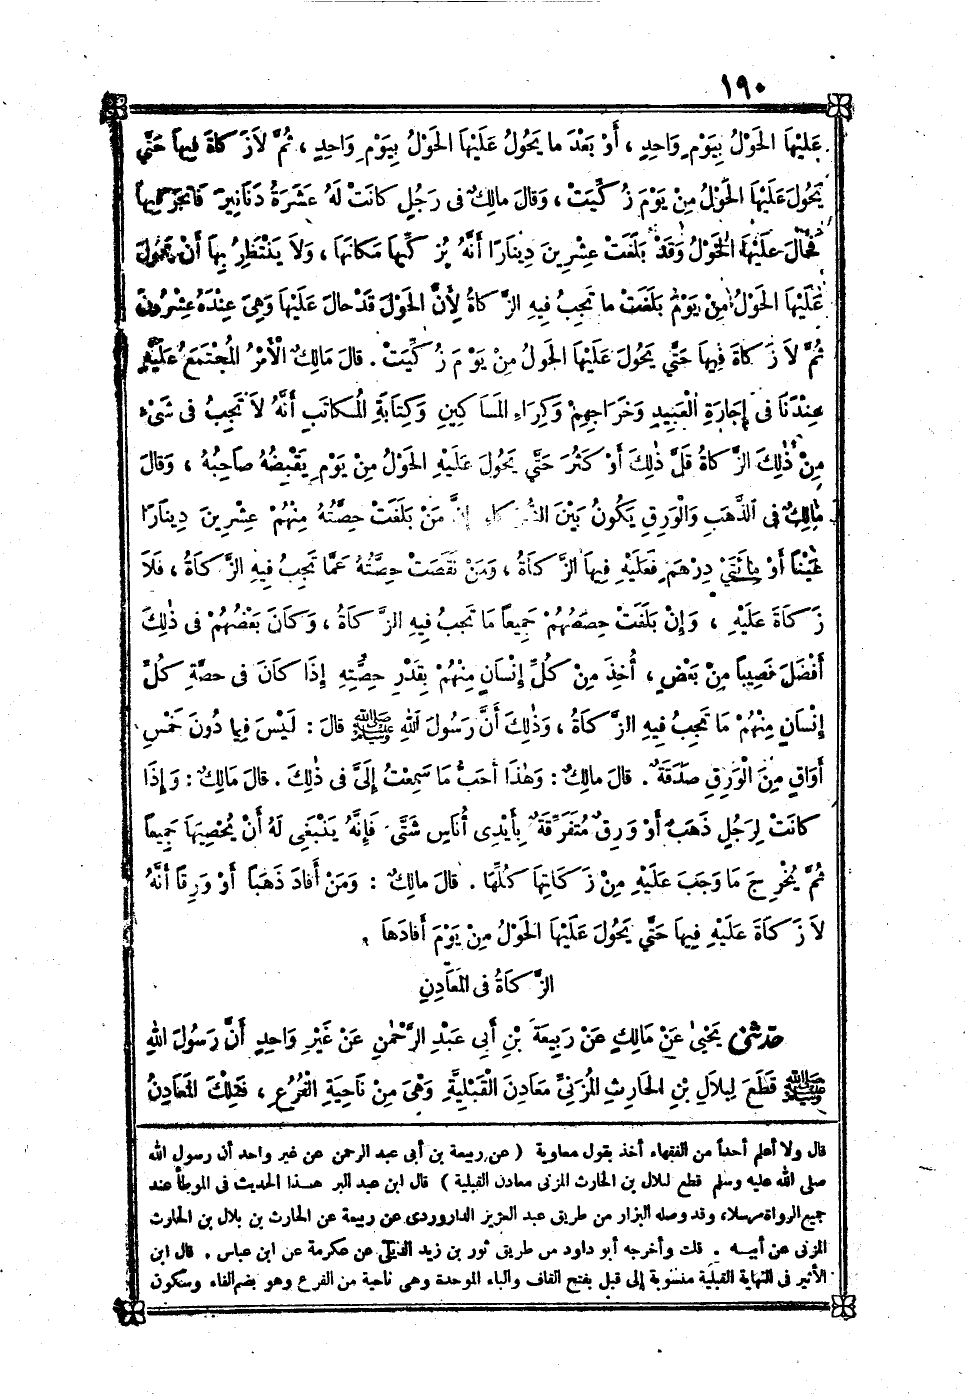 ١٩٠
عَلَيْهَا الحَوْلُ بِيَوْمٍ وَاحِدٍ ، أَوْ بَعْدَ ما يَحُولُ عَلَيْهَا الحَوْلُ بِيَوْمٍ وَاحِدٍ ، ثُمَّ لاَ زَكاةَ فِيهاَ حَتَّى
يَحُولَ عَلَيْهَا الحَوْلُ مِنْ يَوْمَ زُكِّيَتْ ، وَقَالَ مالِكٌ فى رَجُلٍ كانَتْ لَهُ عَشَرَةُ دَنَانِيرَ فَاتَّجَرَ فِيهاَ
فَحَالَ عَلَيْهَا الحَوْلُ وَقَدْ بَلَغَتْ عِشْرِينَ دِينَارًا أَنَّهُ يُزَكِّيها مَكانَهَا ، وَلاَ يَنْتَظِرُ بِهَا أَنْ يَحُولَ
عَلَيْهَا الحَوْلُ مِنْ يَوْمَ بَلَغَتْ ما تَجِبُ فِيهِ الزَّكاةُ لِأَنَّ الحَوْلَ قَدْ حالَ عَلَيْهَا وَهِىَ عِنْدَهُ عِشْرُونَ
ثُمَّ لاَ زَكاةَ فِيهَا حَتَّى يَحُولَ عَلَيْهَا الحَوْلُ مِنْ يَوْمَ زُكِّيَتْ . قالَ مَالِكٌ الْأَمْرُ المُجْتَمَعُ عَلَيْهِ
عِنْدَنَا فى إِجارَةِ الْعَبِيدِ وَخَرَاجِهِمْ وَكِرَاءِ المَسَاكِينِ وَكِتَابَةِ المُكاتَبِ أَنَّهُ لاَ تَجِبُ فى شَىْءٍ
مِنْ ذٰلِكَ الزَّكاةُ قَلَّ ذٰلِكَ أَوْ كَثُرَ حَتَّى يَحُولَ عَلَيْهِ الحَوْلُ مِنْ يَوْمِ يَقْبِضُهُ صَاحِبُهُ ، وَقَالَ
مَالِكٌ فى الذَّهَبِ وَالْوَرِقِ يَكُونُ بَيْنَ الشُّرَكاءِ إِنَّ مَنْ بَلَغَتْ حِصَّتُهُ مِنْهُمْ عِشْرِينَ دِينَارًا
عَيْنًا أَوْ مِائَتَىْ دِرْهَمٍ فَعَلَيْهِ فِيهَا الزَّكاةُ ، وَمَنْ نَقَصَتْ حِصَّتُهُ عَمَّا تَجِبُ فِيهِ الزَّكاةُ ، فَلاَ
زَكاةَ عَلَيْهِ ، وَإِنْ بَلَغَتْ حِصَصُهُمْ جَمِيعاً مَا تَجِبُ فِيهِ الزَّكاةُ ، وَكَانَ بَعْضُهُمْ فى ذٰلِكَ
أَفْضَلَ نَصِيباً مِنْ بَعْضٍ ، أُخِذَ مِنْ كُلِّ إِنْسَانٍ مِنْهُمْ بِقَدْرِ حِصَّتِهِ إِذَا كانَ فى حصَّةِ كُلِّ
إِنْسَانٍ مِنْهُمْ مَا تَجِبُ فِيهِ الزَّكاةُ ، وَذٰلِكَ أَنَّ رَسُولَ اللهِ ﷺ قالَ : لَيْسَ فِيما دُونَ خَمْسِ
أَوَاقٍ مِنَ الْوَرِقِ صَدَقَةٌ . قالَ مالِكٌ : وَهٰذَا أَحَبُّ مَا سَمِعْتُ إِلَىَّ فى ذٰلِكَ . قالَ مَالِكٌ : وَإِذَا
كانَتْ لِرَجُلٍ ذَهَبٌ أَوْ وَرِقٌ مُتَفَرِّقَةٌ بِأَيْدِى أُنَاسٍ شَتَّى فَإِنَّهُ يَنْبَغِى لَهُ أَنْ يُحْصِيَهَا جَمِيعاً
ثُمَّ يُخْرِجَ مَا وَجَبَ عَلَيْهِ مِنْ زَكَاتِهَا كُلِّهَا . قالَ مالِكٌ : وَمَنْ أَفادَ ذَهَبًا أَوْ وَرِقًا أَنَّهُ
لاَ زَكاةَ عَلَيْهِ فِيهَا حَتَّى يَحُولَ عَلَيْهَا الحَوْلُ مِنْ يَوْمَ أَفادَهَا .
الزَّكاةُ فى المَعاَدِنِ
حدثنى يَحْيىٰ عَنْ مَالِكٍ عَنْ رَبِيعَةَ بْنِ أَبِى عَبْدِ الرَّحْمٰنِ عَنْ غَيْرِ وَاحِدٍ أَنَّ رَسُولَ اللهِ
ﷺ قَطَعَ لِبِلاَلِ بْنِ الحَارِثِ المُزَنِىِّ مَعَادِنَ الْقَبَلِيَّةِ وَهْىَ مِنْ نَاحِيَةِ الْفُرُعِ ، فَتِلْكَ المَعَادِنُ
قال ولا أعلم أحداً من الفقهاء أخذ بقول معاوية ( عن ربيعة بن أبى عبد الرحمن عن غير واحد أن رسول الله
صلى الله عليه وسلم قطع لبلال بن الحارث المزنى معادن القبلية ) قال ابن عبد البر هـذا الحديث فى الموطأ عند
جميع الرواة مرسلا ، وقد وصله البزار من طريق عبد العزيز الداروردى عن ربيعة عن الحارث بن بلال بن الحارث
المزنى عن أبيـه . قلت وأخرجه أبو داود من طريق ثور بن زيد الديلى عن عكرمة عن ابن عباس . قال ابن
الأثير فى النهاية القبلية منسوبة إلى قبل بفتح القاف والباء الموحدة وهى ناحية من الفرع وهو بضم الفاء وسكون